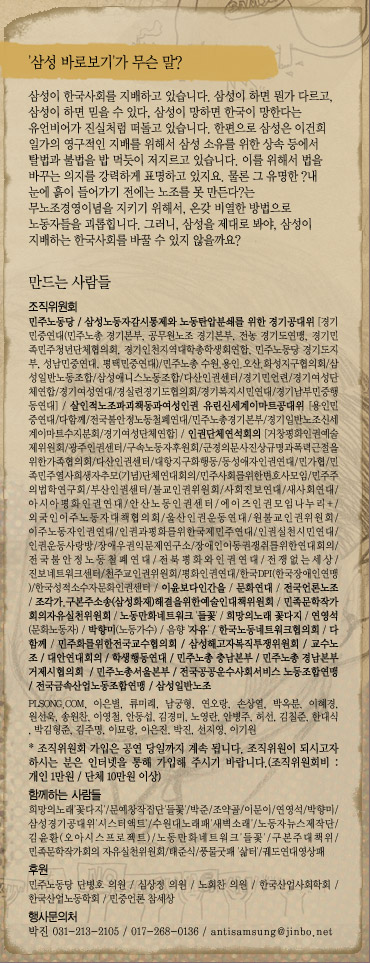 '삼성 바로보기'가 무슨 말?
삼성이 한국사회를 지배하고 있습니다. 삼성이 하면 뭔가 다르고,
삼성이 하면 믿을 수 있다. 삼성이 망하면 한국이 망한다는
유언비어가 진실처럼 떠돌고 있습니다. 한편으로 삼성은 이건희
일가의 영구적인 지배를 위해서 삼성 소유를 위한 상속 등에서
탈법과 불법을 밥 먹듯이 저지르고 있습니다. 이를 위해서 법을
바꾸는 의지를 강력하게 표명하고 있지요. 물론 그 유명한 ?내
눈에 흙이 들어가기 전에는 노조를 못 만든다?는
무노조경영이념을 지키기 위해서, 온갖 비열한 방법으로
노동자들을 괴롭힙니다. 그러니, 삼성을 제대로 봐야, 삼성이
지배하는 한국사회를 바꿀 수 있지 않을까요?
만드는 사람들
조직위원회
민주노동당 / 삼성노동자감시통제와 노동탄압분쇄를 위한 경기공대위 [경기
민중연대(민주노총 경기본부, 공무원노조 경기본부, 전농 경기도연맹, 경기민
족민주청년단체협의회, 경기인천지역대학총학생회연합, 민주노동당 경기도지
부, 성남민중연대, 평택민중연대)/민주노총 수원.용인.오산.화성지구협의회/삼
성일반노동조합/삼성애니스노동조합/다산인권센터/경기민언련/경기여성단
체연합/경기여성연대/경실련경기도협의회/경기복지시민연대/경기남부민중행
동연대] / 살인적노조파괴책동과여성인권 유린신세계이마트공대위 [용인민
중연대/다함께/전국불안정노동철폐연대/민주노총경기본부/경기일반노조신세
계이마트수지분회/경기여성단체연합] / 인권단체연석회의 [거창평화인권예술
제위원회/광주인권센터/구속노동자후원회/군경의문사진상규명과폭력근절을
위한가족협의회/다산인권센터/대항지구화행동/동성애자인권연대/민가협/민
족민주열사희생자추모(기념)단체연대회의/민주사회를위한변호사모임/민주주
의법학연구회/부산인권센터/불교인권위원회/사회진보연대/새사회연대/
아시아평화인권연대/안산노동인권센터/에이즈인권모임나누리+/
외국인이주노동자대책협의회/울산인권운동연대/원불교인권위원회/
이주노동자인권연대/인권과평화를위한국제민주연대/인권실천시민연대/
인권운동사랑방/장애우권익문제연구소/장애인이동권쟁취를위한연대회의/
전국불안정노동철폐연대/전북평화와인권연대/전쟁없는세상/
진보네트워크센터/천주교인권위원회/평화인권연대/한국DPI(한국장애인연맹
)/한국성적소수자문화인권센터 / 이윤보다인간을 / 문화연대 / 전국언론노조
/ 조각가.구본주소송(삼성화재)해결을위한예술인대책위원회 / 민족문학작가
회의자유실천위원회 / 노동만화네트워크 '들꽃' / 희망의노래 꽃다지 / 연영석
(문화노동자) / 박향미(노동가수) / 음향 '자유' / 한국노동네트워크협의회 / 다
함께 / 민주화를위한전국교수협의회 / 삼성해고자복직투쟁위원회 / 교수노
조 / 대안연대회의 / 학생행동연대 / 민주노총 충남본부 / 민주노총 경남본부
거제시협의회 / 민주노총서울본부 / 전국공공운수사회서비스 노동조합연맹
/ 전국금속산업노동조합연맹 / 삼성일반노조
PLSONG.COM, 이은별, 류미례, 남궁형, 연오랑, 손상열, 박옥문, 이혜경,
원선옥, 송원찬, 이영철, 안동섭, 김경미, 노영란, 양병주, 허선, 김칠준, 한대식
, 박김형준, 김주명, 이묘랑, 이은진, 박진, 선지영, 이기원
* 조직위원회 가입은 공연 당일까지 계속 됩니다. 조직위원이 되시고자
하시는 분은 인터넷을 통해 가입해 주시기 바랍니다.(조직위원회비 :
개인 1만원 / 단체 10만원 이상)
함께하는 사람들
희망의노래'꽃다지'/문예창작집단'들꽃'/박준/조약골/이문아/연영석/박향미/
삼성경기공대위'시스터액트'/수원대노래패'새벽소래'/노동자뉴스제작단/
김윤환(오아시스프로젝트)/노동만화네트워크'들꽃'/구본주대책위/
민족문학작가회의 자유실천위원회/배준식/풍물굿패 '삶터'/궤도연대영상패
후원
민주노동당 단병호 의원 / 심상정 의원 / 노회찬 의원 / 한국산업사회학회 /
한국산업노동학회 / 민중언론 참세상
행사문의처
박진 031-213-2105 / 017-268-0136 / antisamsung@jinbo.net